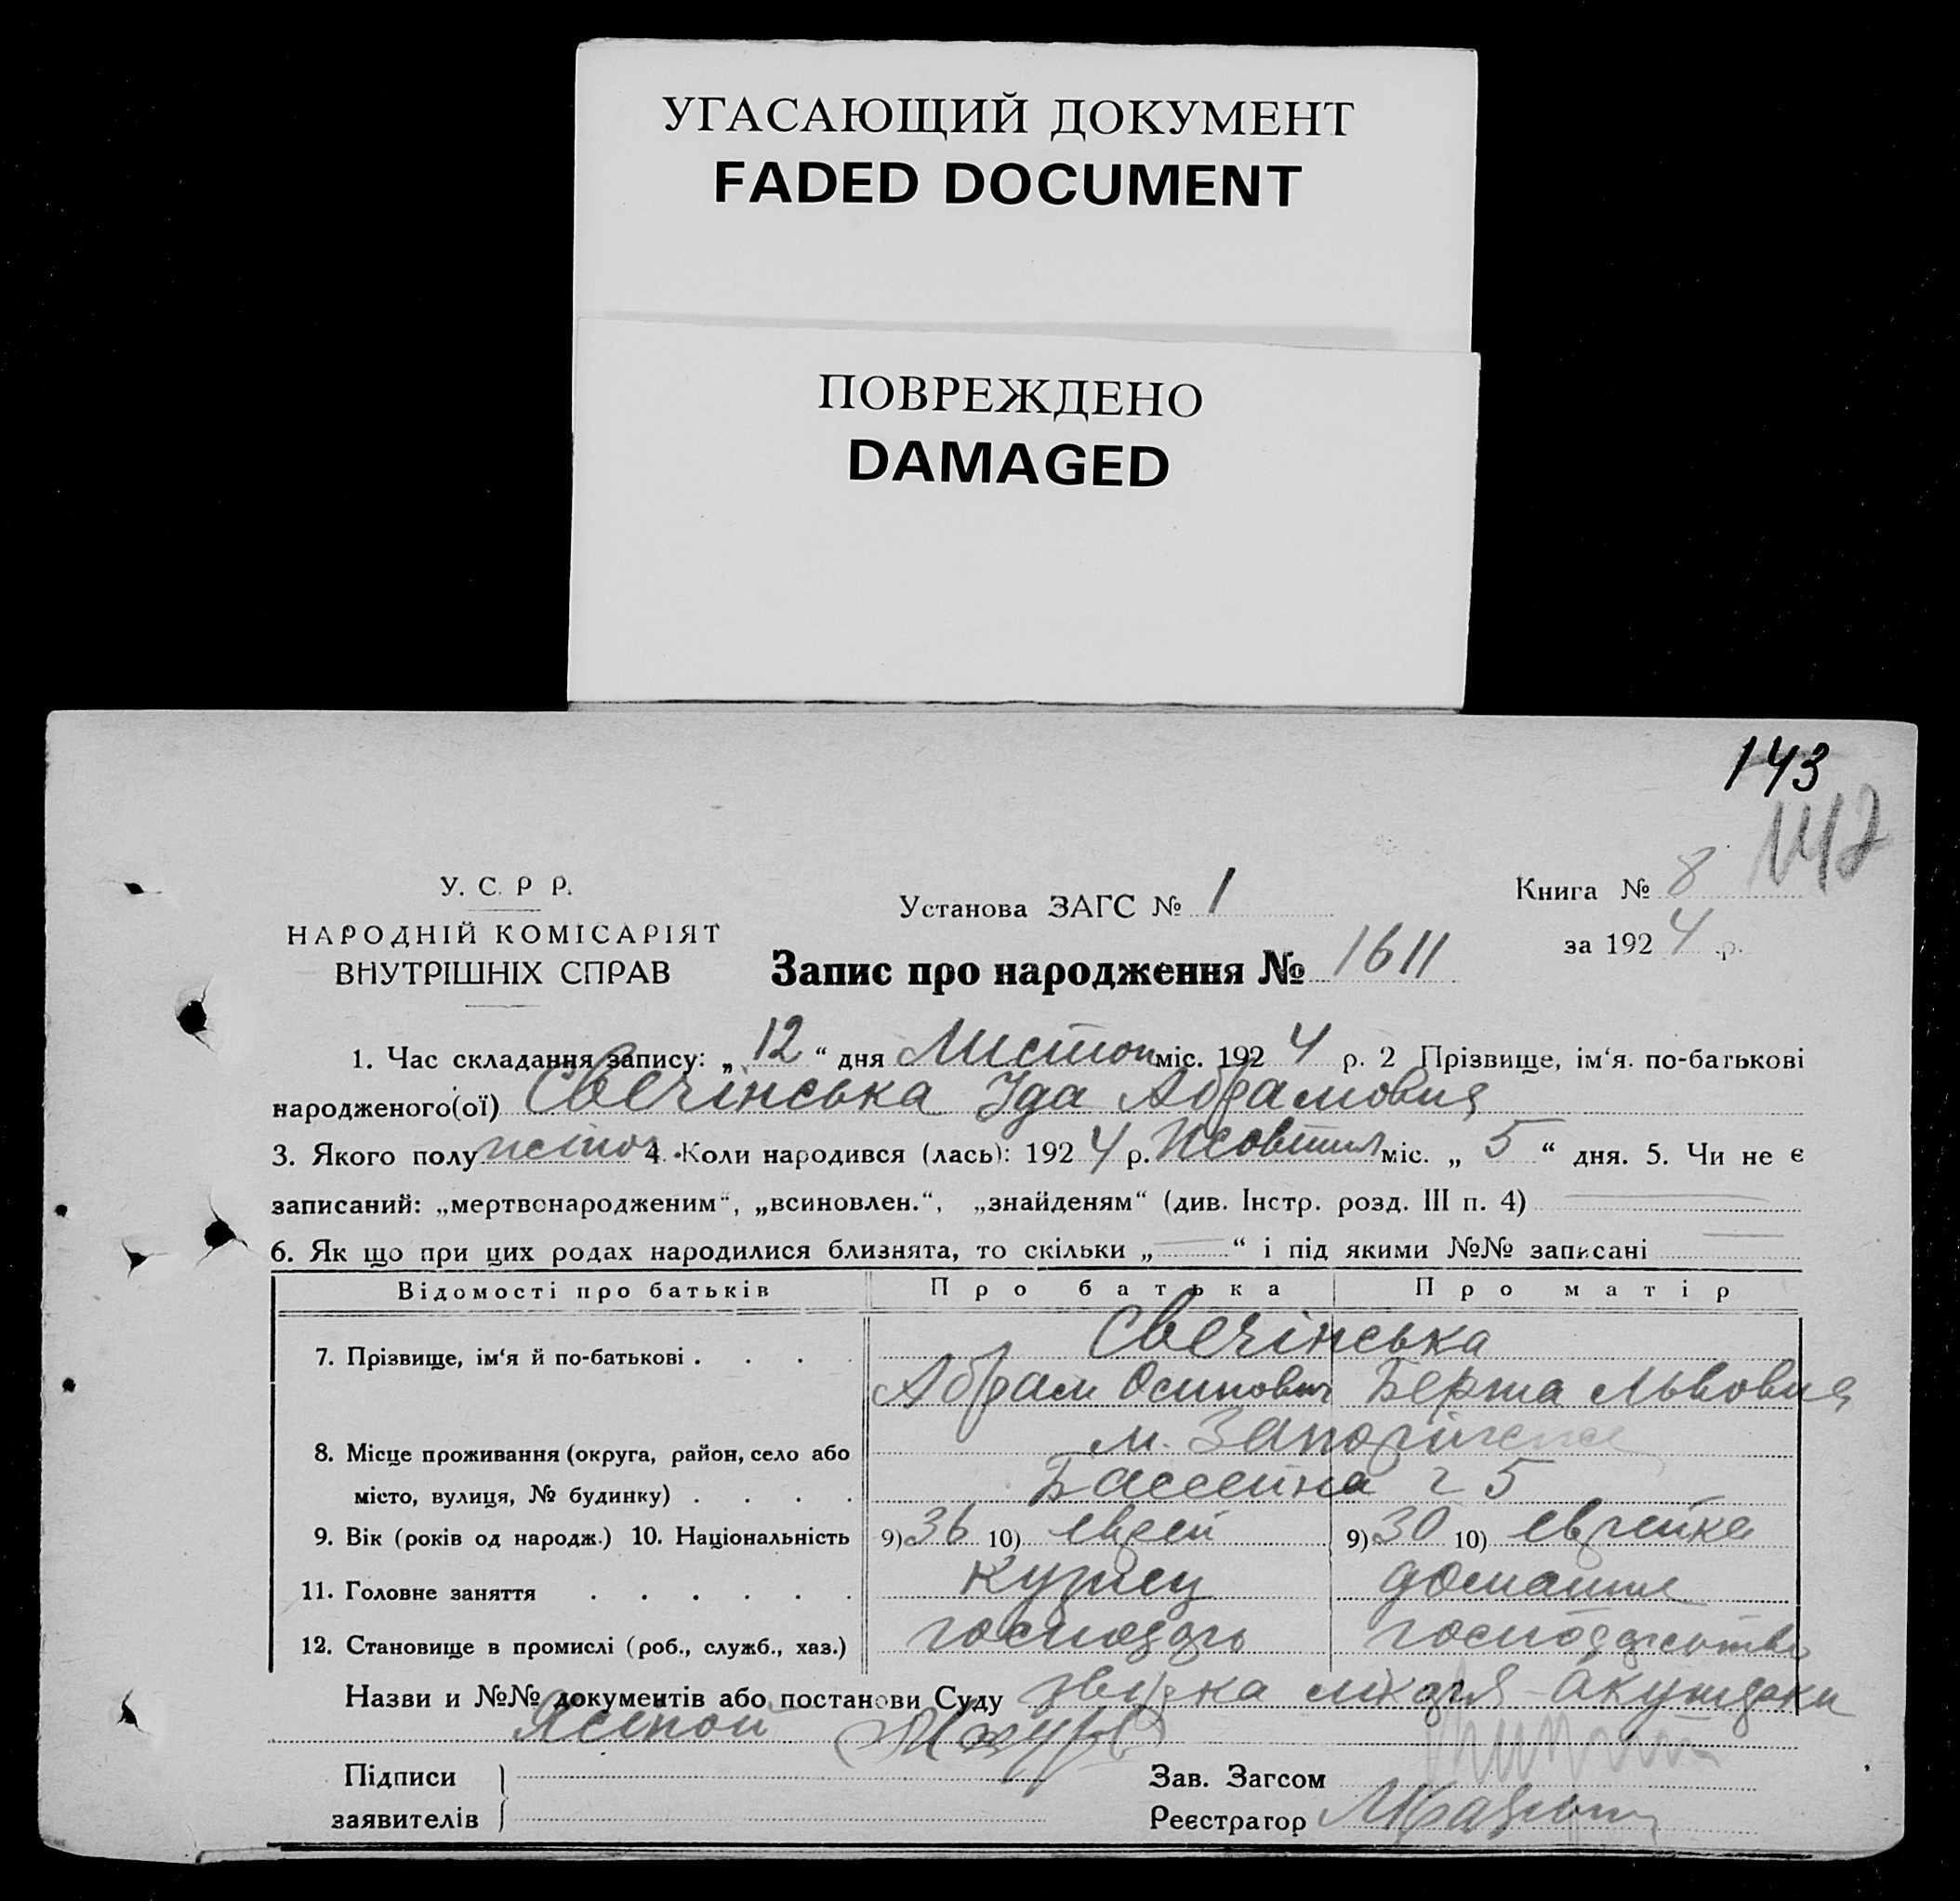 УГАСАЮЩИЙ ДОКУМЕНТ
FADED DOCUMENT
ПОВРЕЖДЕНО
DAMAGED
143
142
У. С. Р Р.
НАРОДНІЙ КОМІСАРІЯТ
ВНУТРІШНІХ СПРАВ
Установа ЗАГС № 1
Книга № 8
за 1924 р.
Запис про народження № 1611
1. Час складання запису: „12“ дня Листоп міс. 1924 р. 2 Прізвище, ім‘я. по-батькові
народженого(ої) Свечінська Іда Абрамовна
3. Якого полу жіноч 4. Коли народився (лась): 1924 р. Жовтня міс. „5“ дня. 5. Чи не є
записаний: „мертвонародженим“, „всиновлен.“, „знайденям“ (див. Інстр. розд. III п. 4)
6. Як що при цих родах народилися близнята, то скільки „—“ і під якими №№ записані
Відомості про батьків Про батька Про матір
7. Прізвище, ім‘я й по-батькові . . . . Свечінська
Абрам Осипович Берта Львовна
8. Місце проживання (округа, район, село або м. Запоріжже
місто, вулиця, № будинку) . . . . Бассейна 5
9. Вік (років од народж.) 10. Національність 9) 36 10) єврей 9) 30 10) єврейка
11. Головне заняття . . . . . . купец домашнє
12. Становище в промислі (роб., служб., хаз.) господарь господарство
Назви и №№ документів або постанови Суду акушерки
Підписи
заявителів
Зав. Загсом
Реєстратор